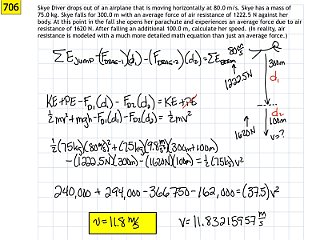 706
Skye Diver drops out of an airplane that is moving horizontally at 80.0 m/s. Skye has a mass of
75.0 kg. Skye falls for 300.0 m with an average force of air resistance of 1222.5 N against her
body. At this point in the fall she opens her parachute and experiences an average force due to air
resistance of 1620 N. After falling an additional 100.0 m, calculate her speed. (In reality, air
resistance is modeled with a much more detailed math equation than just an average force.)
80 m/s
1222.5N
d₁
d₂
100m
1620N
v=?
KE+PE-F₀₁(d₁)-F₀₂(d₂)=KE+PE
½mv²+mgh-F₀₁(d₁)-F₀₂(d₂)=½mv²
½(75kg)(80m/s)²+(75kg)(9.8m/s²)(300m+100m)
-(1222.5N)(300m)-(1620N)(100m)=½(75kg)v²
240,000+294,000-366750-162,000=(37.5)v²
v=11.8 m/s
v=11.83215957 m/s